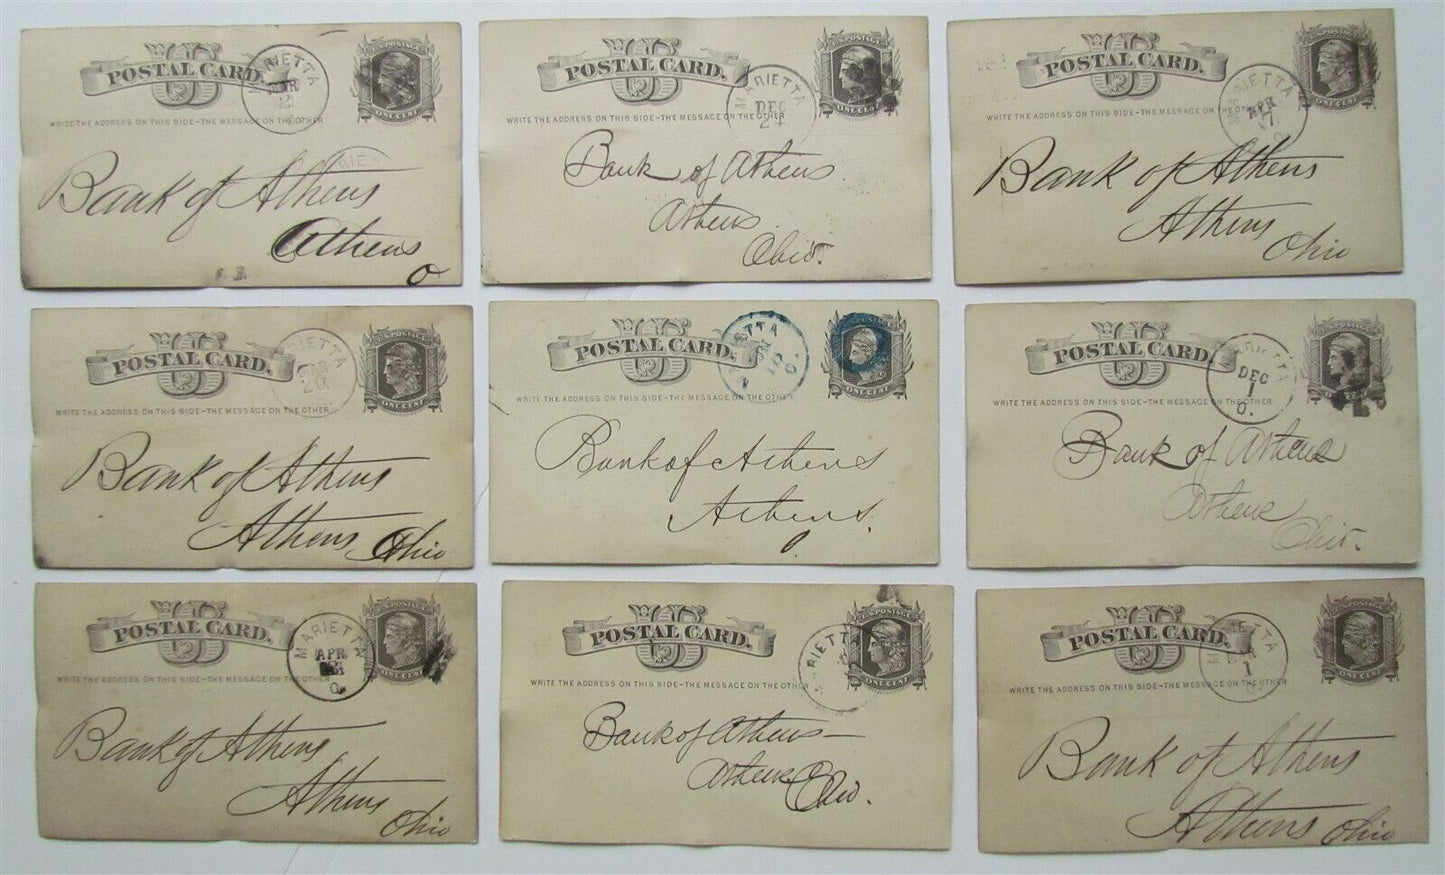 POSTAL CARD.
U.S. POSTAGE
ONE CENT
MARIETTA
MAR
2
O.
WRITE THE ADDRESS ON THIS SIDE-THE MESSAGE ON THE OTHER
RIE
Bank of Athens
Athens
O
POSTAL CARD.
U.S. POSTAGE
ONE CENT
MARIETTA
DEC
24
WRITE THE ADDRESS ON THIS SIDE-THE MESSAGE ON THE OTHER
Bank of Athens.
Athens
Ohio.
POSTAL CARD.
U.S. POSTAGE
ONE CENT
MARIETTA
APR
17
O
WRITE THE ADDRESS ON THIS SIDE-THE MESSAGE ON THE OTHER
Bank of Athens
Athens
Ohio
POSTAL CARD.
U.S. POSTAGE
ONE CENT
RIETTA
20
WRITE THE ADDRESS ON THIS SIDE-THE MESSAGE ON THE OTHER
Bank of Athens
Athens Ohio
POSTAL CARD.
U.S. POSTAGE
ONE CENT
ETTA
O
WRITE THE ADDRESS ON THIS SIDE-THE MESSAGE ON THE OTHER
Bank of Athens
Athens.
O.
POSTAL CARD.
U.S. POSTAGE
ONE CENT
RIETTA
DEC
1
O.
WRITE THE ADDRESS ON THIS SIDE-THE MESSAGE ON THE OTHER
Bank of Athens
Athens
Ohio.
POSTAL CARD.
U.S. POSTAGE
ONE CENT
MARIETTA
APR
O.
WRITE THE ADDRESS ON THIS SIDE-THE MESSAGE ON THE OTHER
Bank of Athens
Athens
Ohio
POSTAL CARD.
U.S. POSTAGE
ONE CENT
RIETTA
WRITE THE ADDRESS ON THIS SIDE-THE MESSAGE ON THE OTHER
Bank of Athens—
Athens
Ohio.
POSTAL CARD.
U.S. POSTAGE
ONE CENT
ETTA
1
O.
WRITE THE ADDRESS ON THIS SIDE-THE MESSAGE ON THE OTHER
Bank of Athens
Athens Ohio